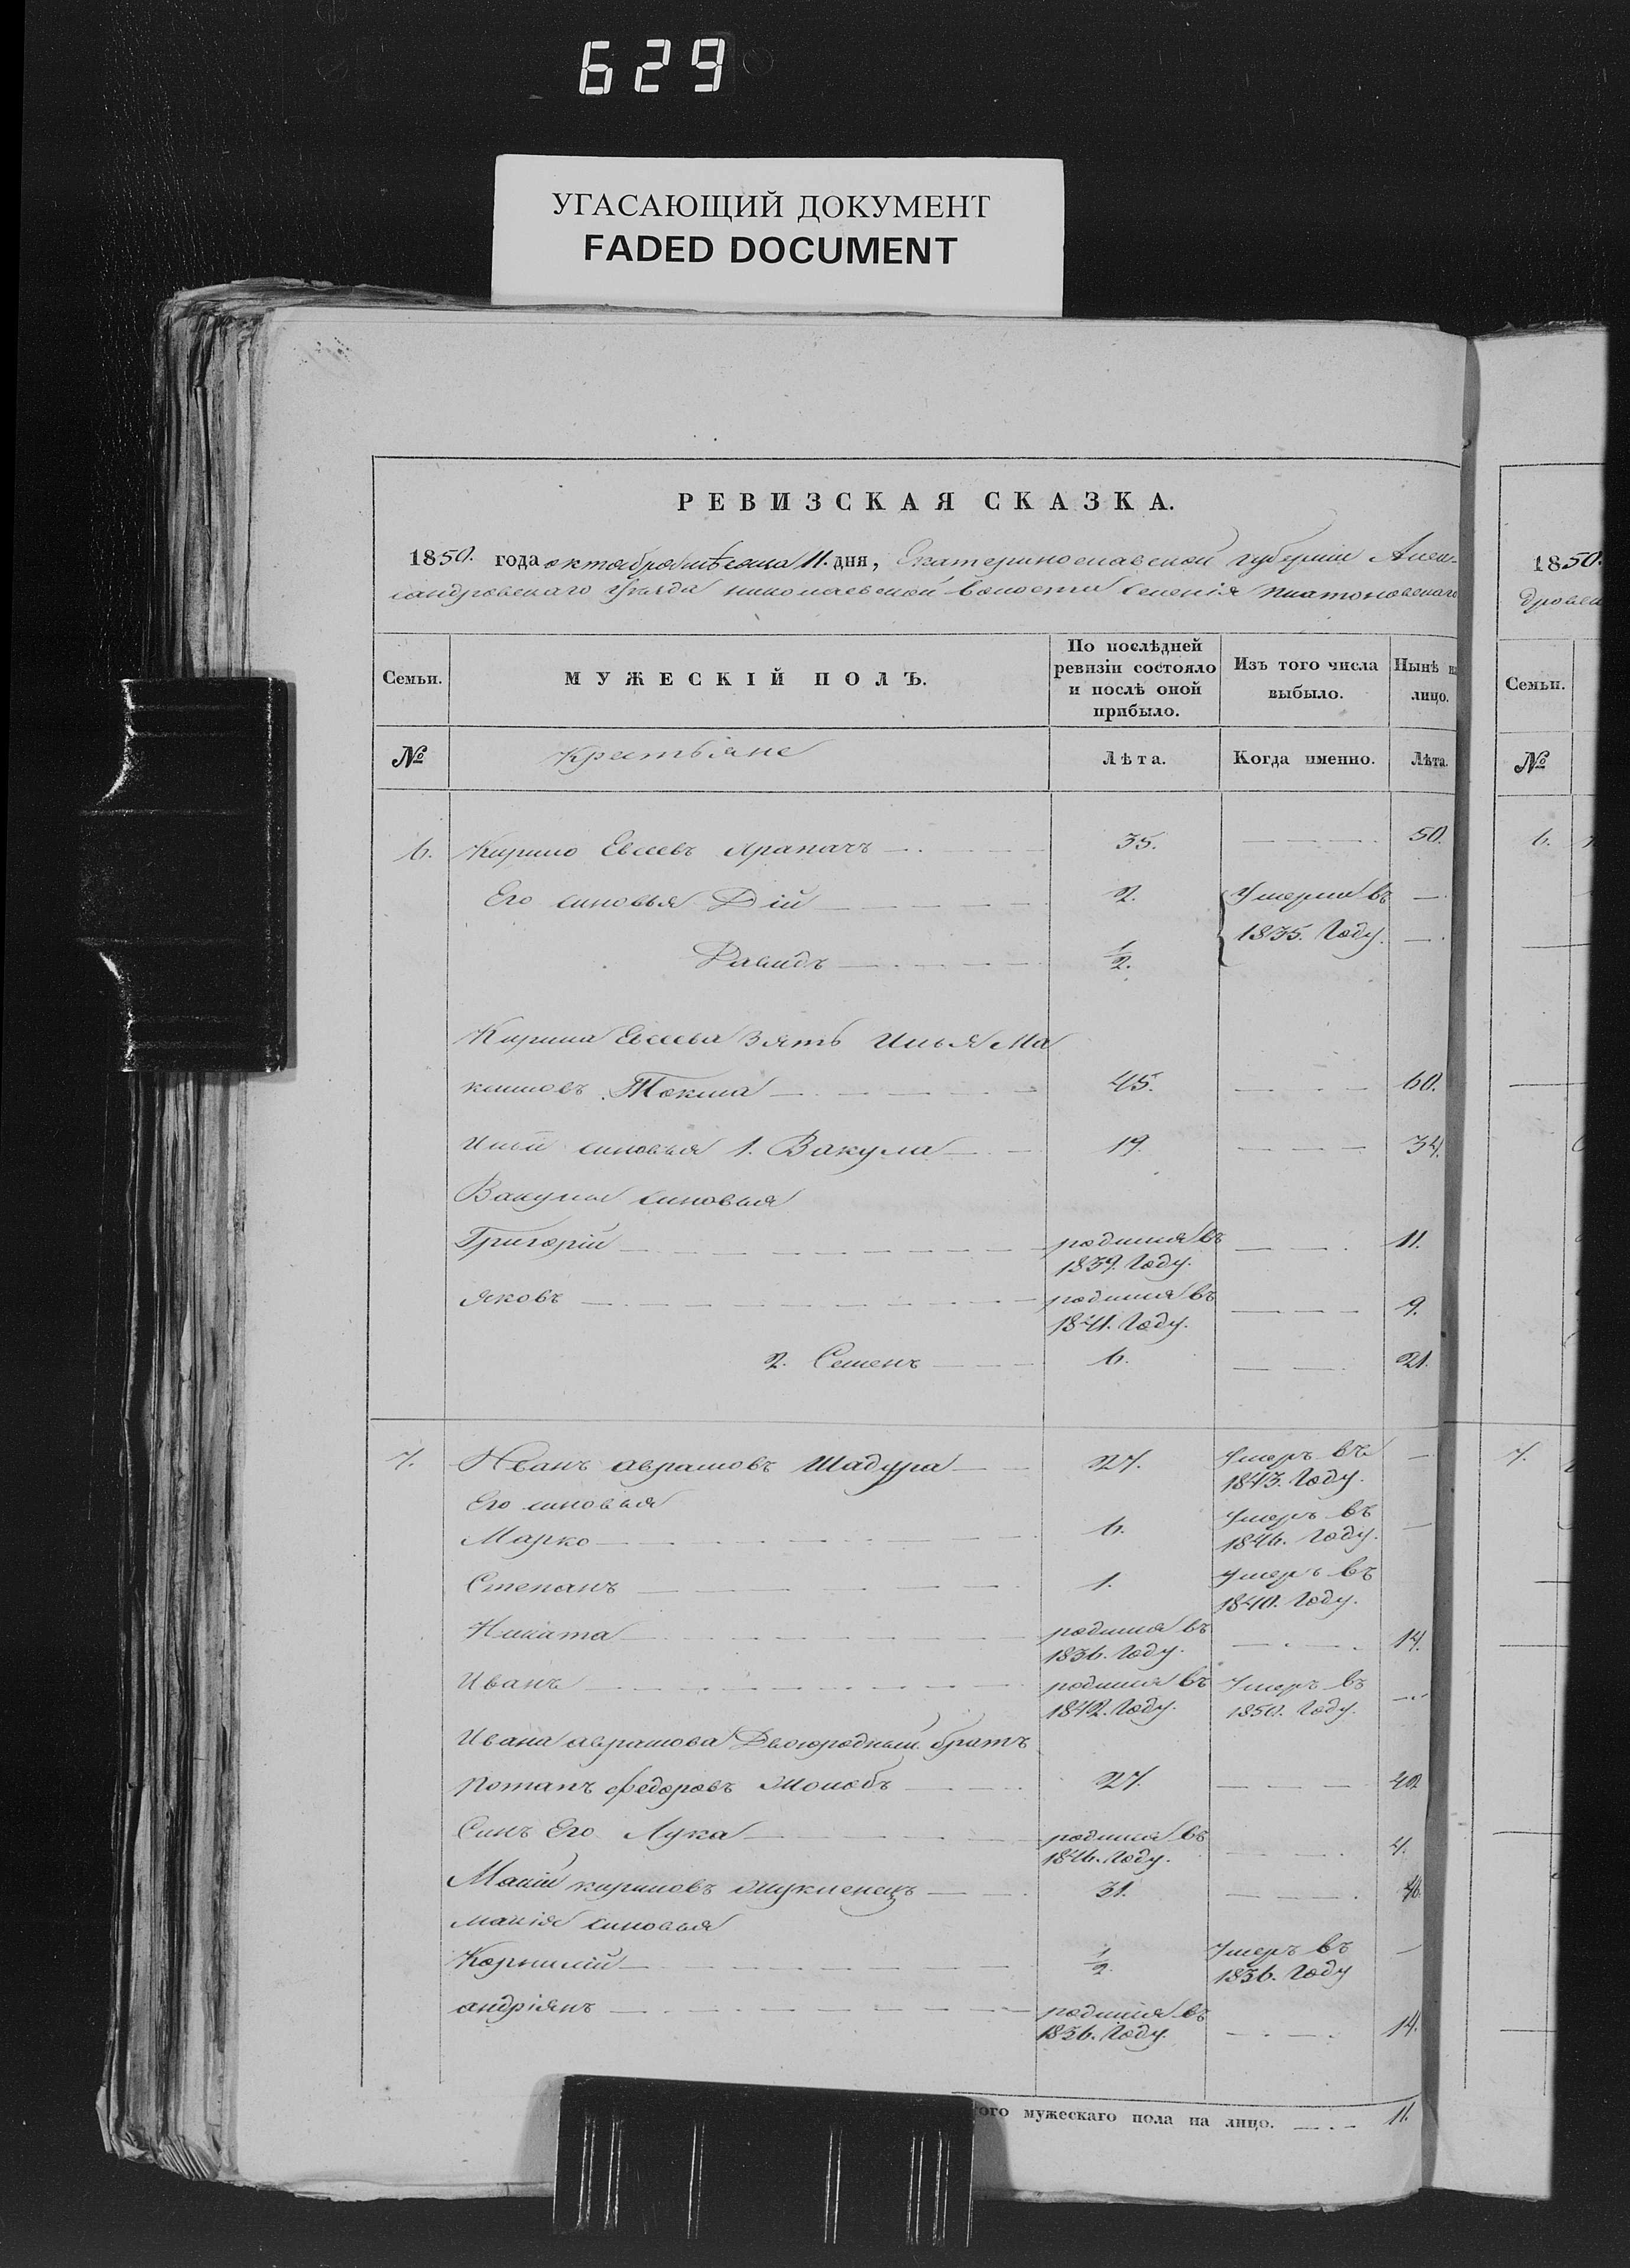 629
УГАСАЮЩИЙ ДОКУМЕНТ
FADED DOCUMENT
РЕВИЗСКАЯ СКАЗКА.
1850. года октября мѣсяца 11. дня, Екатеринославской губерніи Алек-
сандровскаго уѣзда николаевской волости селенія платоновскаго
Семьи.
МУЖЕСКІЙ ПОЛЪ.
По послѣдней ревизіи состояло и послѣ оной прибыло.
Изъ того числа выбыло.
Нынѣ
лицо.
№
Крестьяне
Лѣта.
Когда именно.
Лѣта.
6. Кирило Евсеевъ 35. 50.
Его синовья Дій 2. Умерли въ
1835. Году.
Давидъ 1/2.
Кирила Евсеева зять Илья Ма
45. 60.
Ильи синовья 1. Вакула 19. 34.
Вакулы синовья
Григорій родился въ 11.
1839. Году.
Яковъ родился въ 9.
1841. Году.
2. Семенъ 6. 21.
7. Иванъ аврамовъ Шадура 27. Умеръ въ
1843. Году.
Его синовья
Марко 6. Умеръ въ
1846. Году.
Степанъ 1. Умеръ въ
1840. Году.
Никита родился въ 14.
1836. Году.
Иванъ родился въ Умеръ въ
1842. Году. 1850. Году.
Ивана аврамова Двоюродный братъ
Потапъ федоровъ 27. 42
Синъ Его Лука родился въ 4.
1846. Году.
кириловъ 31. 46.
синовья
Корнилій 1/2. Умеръ въ
1836. Году
андріянъ родился въ 14.
1836. Году.
ого мужескаго пола на лицо. 11.
1850.
Семьи.
№
6.
7.